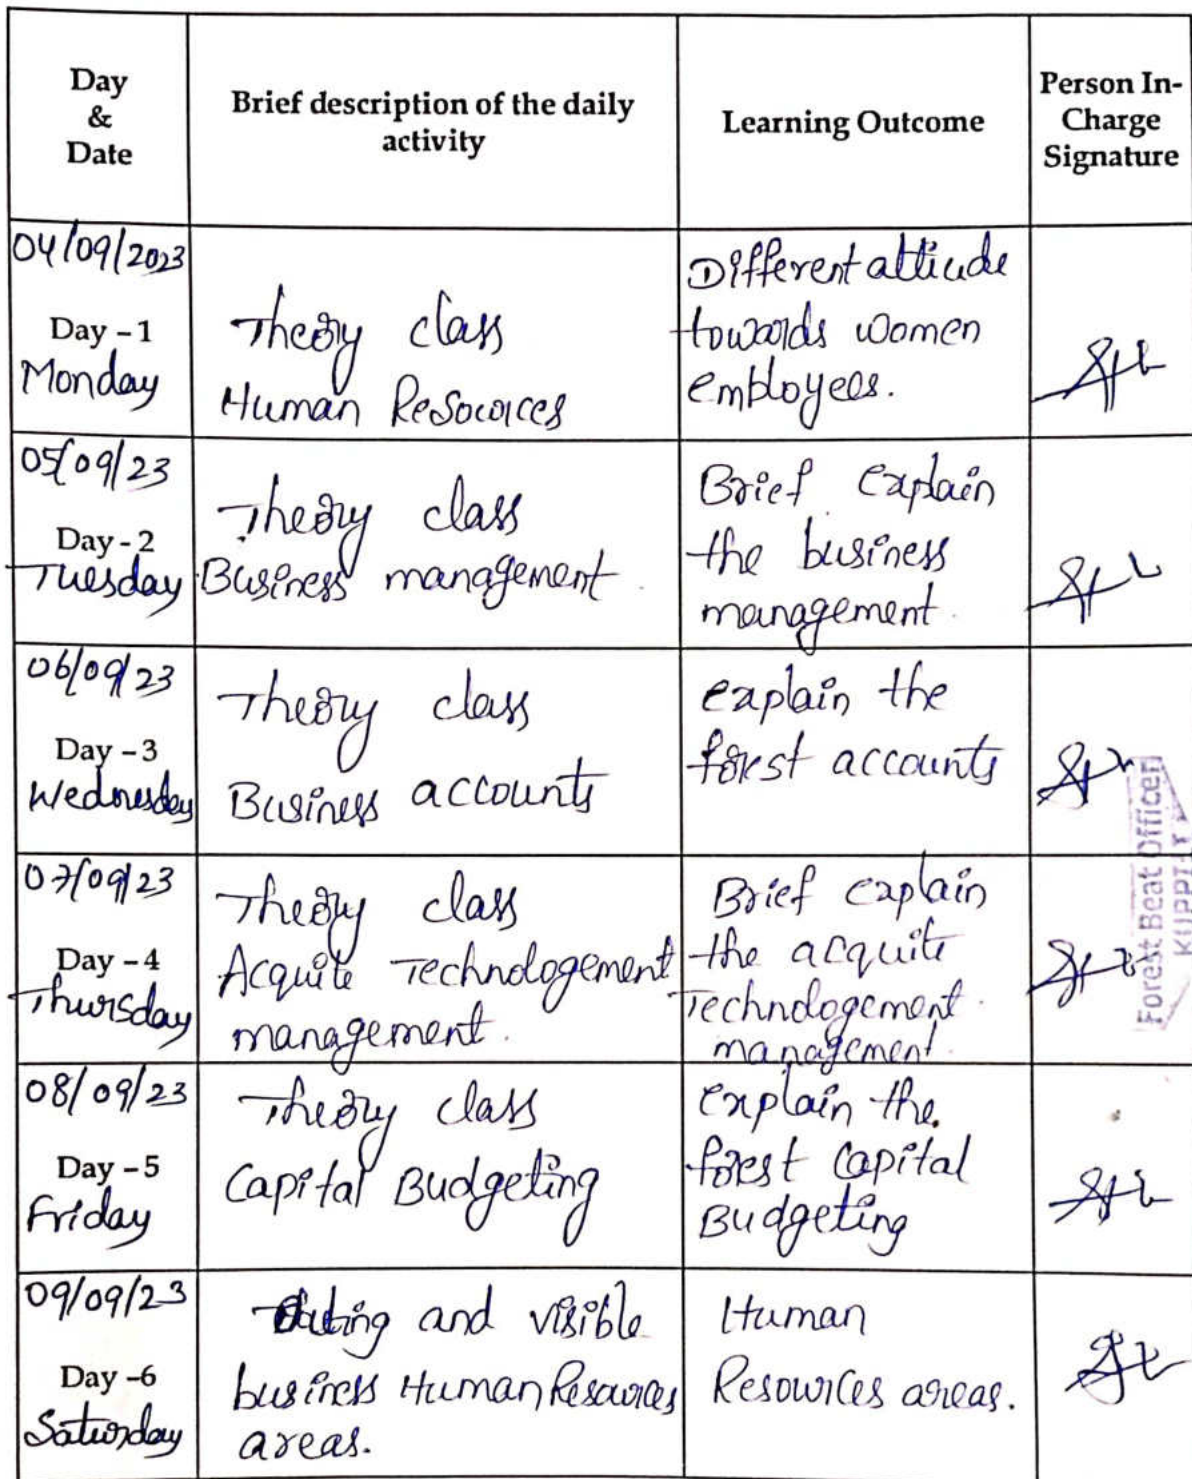 Day
&
Date
Brief description of the daily
activity
Learning Outcome
Person In-
Charge
Signature
04/09/2023
Day - 1
Monday
Theory class
Human Resources
Different attiude
towards women
employees.
05/09/23
Day - 2
Tuesday
Theory class
Business management.
Brief explain
the business
management.
06/09/23
Day - 3
Wednesday
Theory class
Business accounts
explain the
forest accounts
07/09/23
Day - 4
Thursday
Theory class
Acquite Technologement
management.
Brief explain
the acquite
Technologement.
management.
Forest Beat Officer
08/09/23
Day - 5
Friday
Theory class
Capital Budgeting
explain the.
forest capital
Budgeting
09/09/23
Day -6
Saturday
and visible
business Human Resources
areas.
Human
Resources areas.